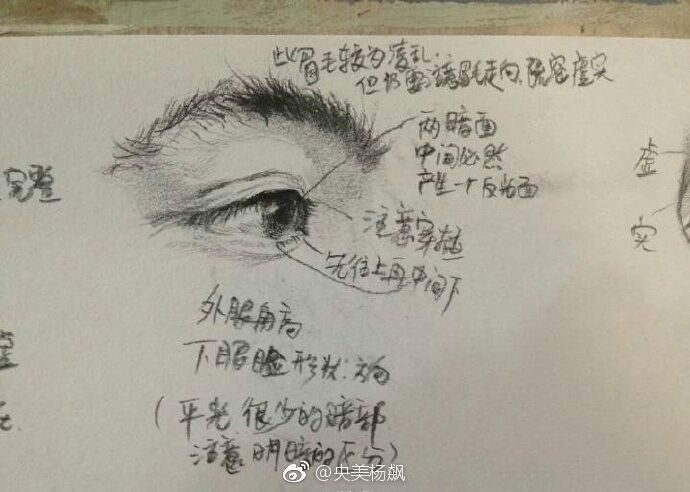 此眉毛较为凌乱.
但仍要注意眉毛走向,疏密虚实
两暗面
中间必然
产生一个反光面
完整
虚
注意穿插
实
先往上再中间下
外眼角高
下眼睑形状.方向
(平光很少的暗部
注意明暗的区分)
@央美杨飙